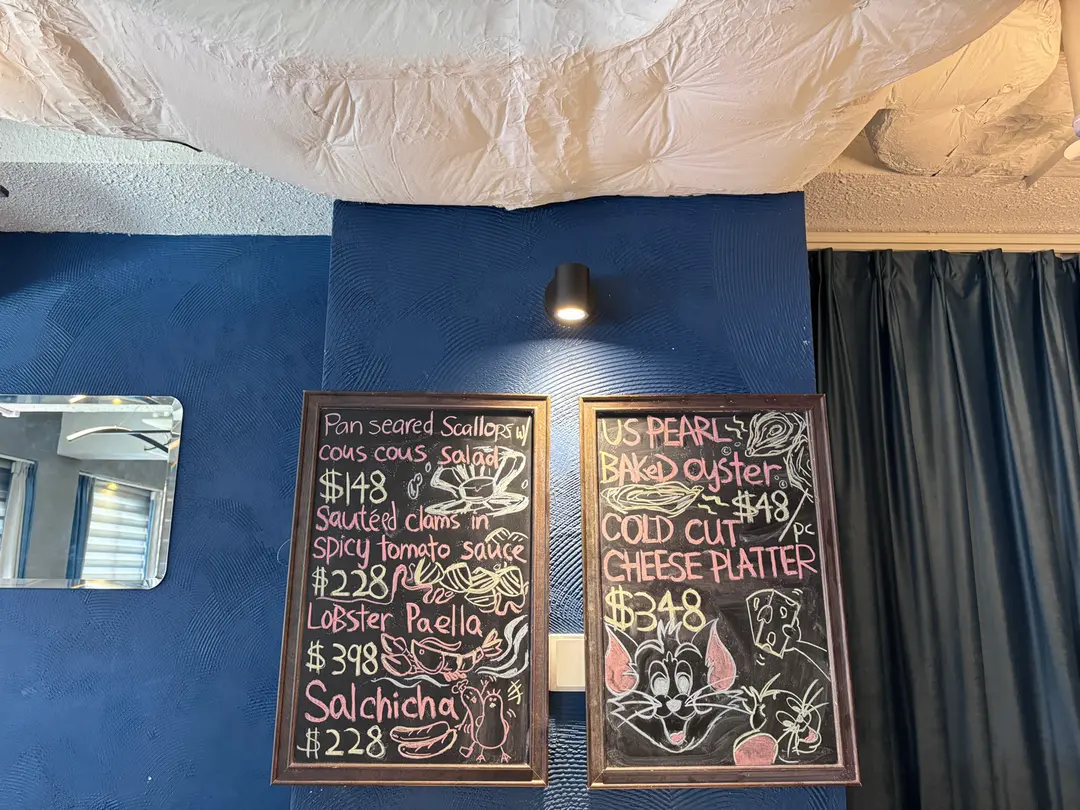 Pan seared Scallops w/
cous cous salad
$148
Sautéed clams in
spicy tomato sauce
$228
LoBster Paella
$398
Salchicha
$228
US PEARL
BAKeD oyster
$48
/pc
COLD CUT
CHEESE PLATTER
$348